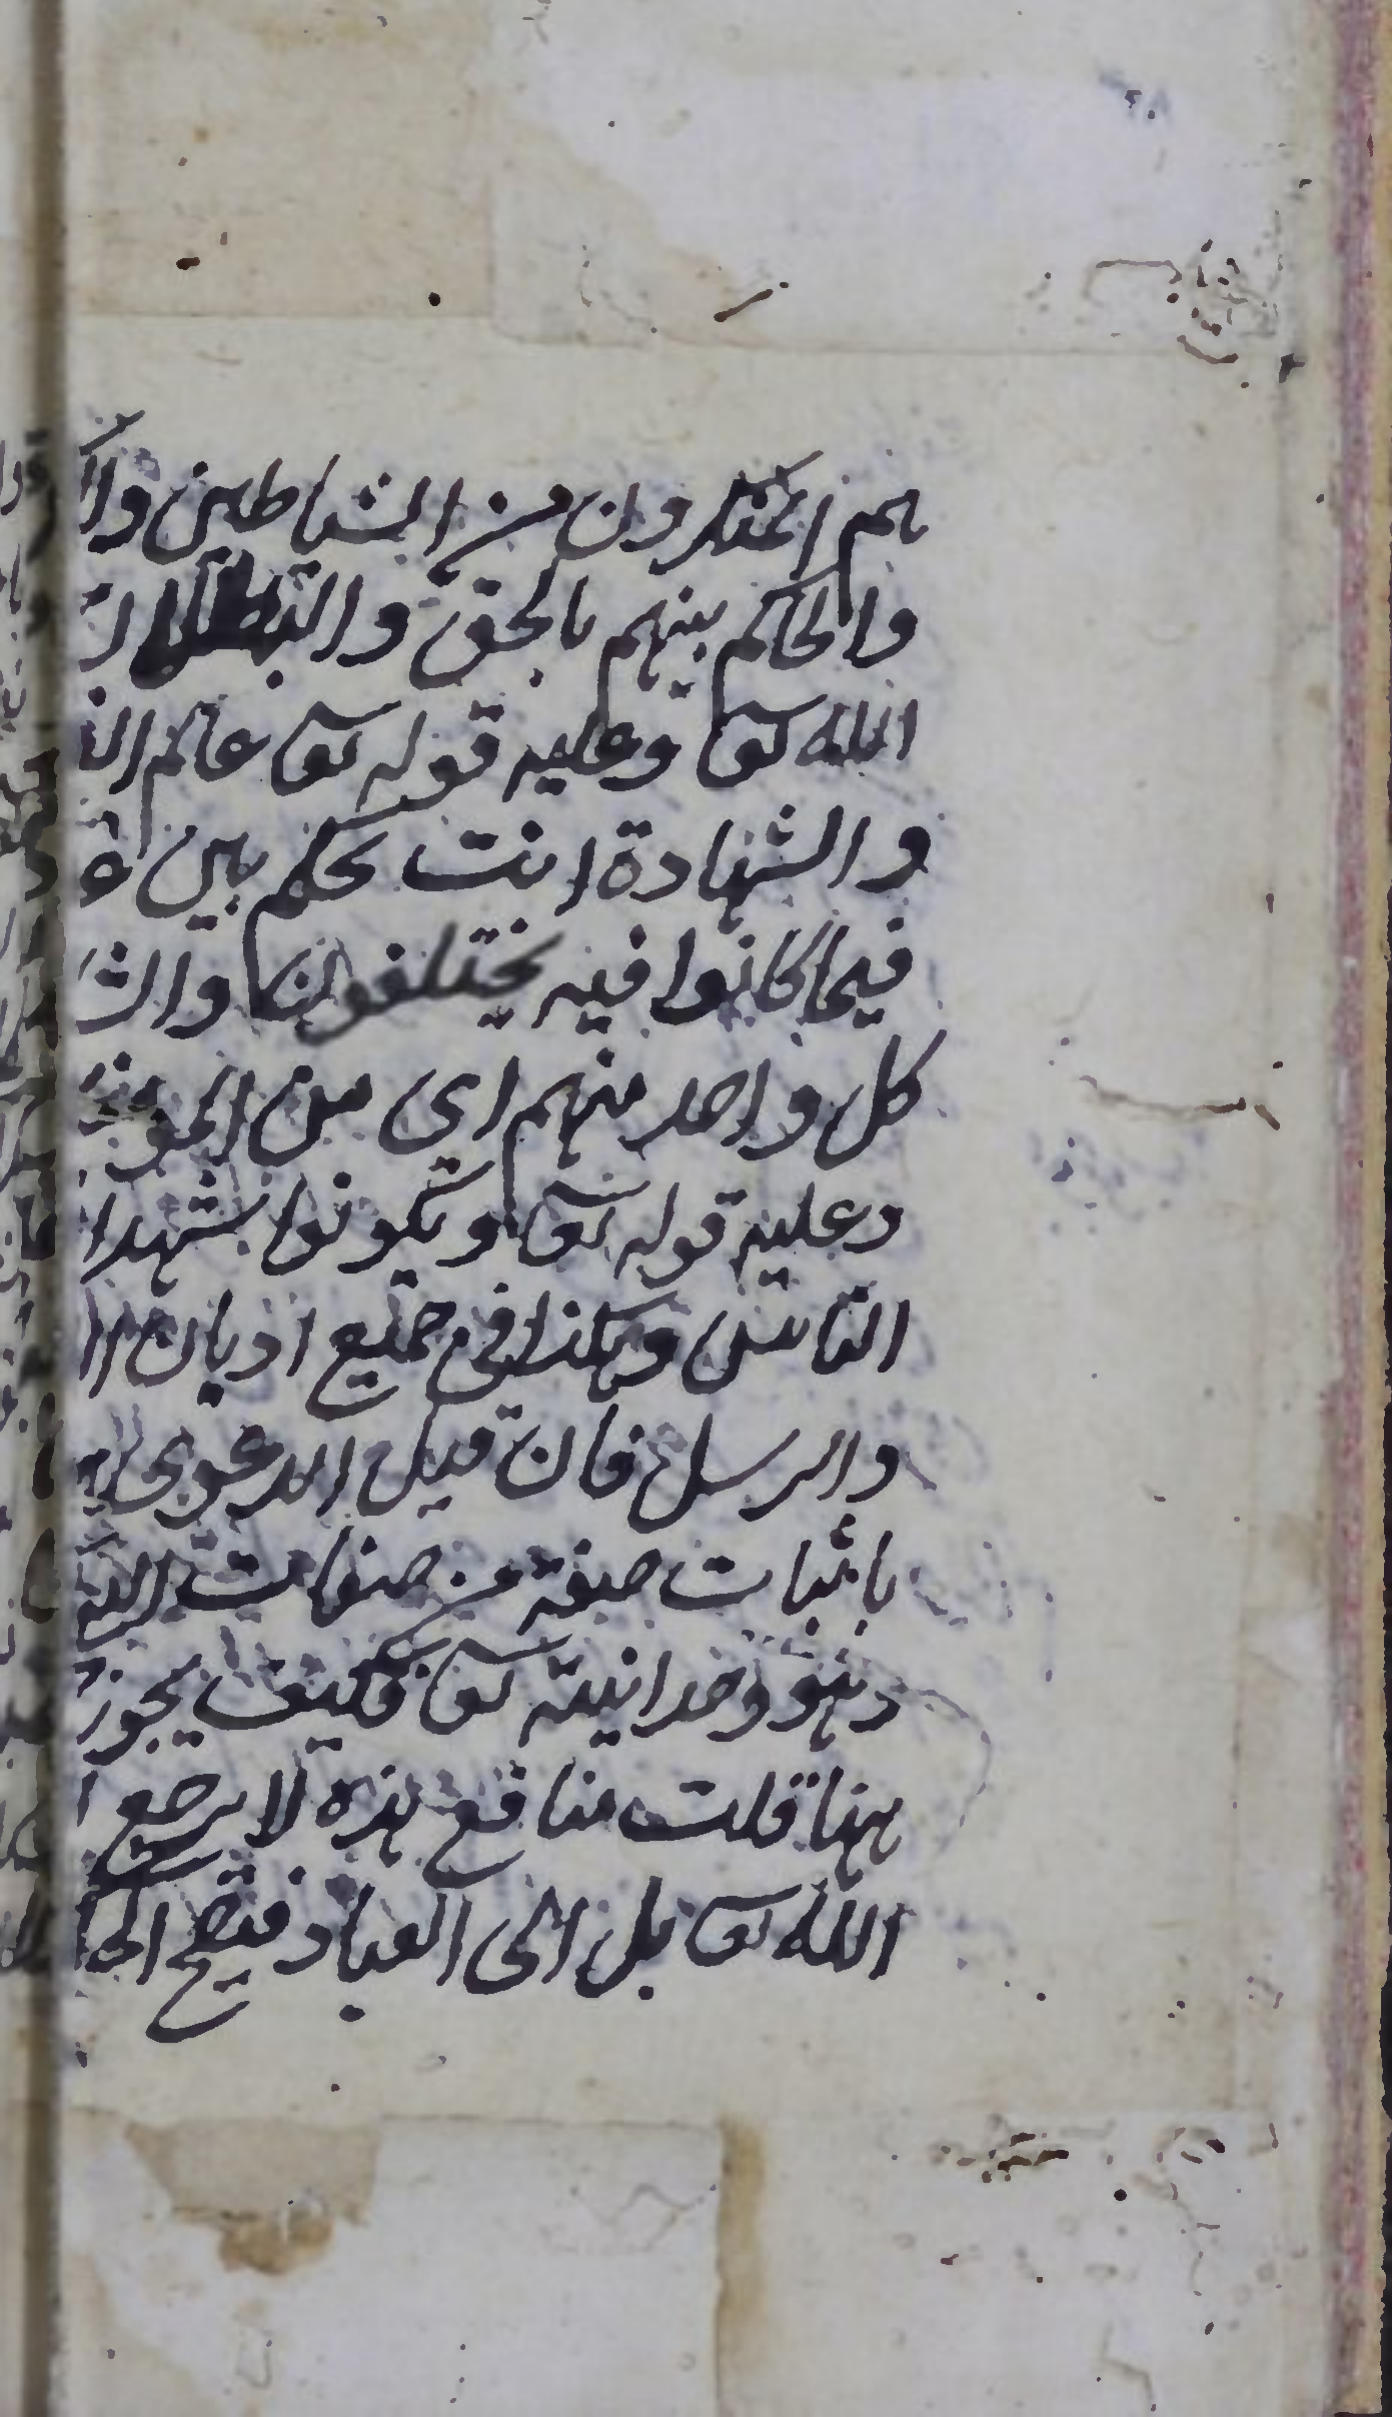 هم المنكرون من الشياطين
والحاكم بينهم بالحق والبطلان
الله تعا وعليه قوله تعا عالم
والشهادة انت تحكم بين
فيما كانوا فيه يختلفون
كل واحد منهم اى من
وعليه قوله تعا وتكونوا شهدا
الناس وهكذا فى جميع اديان
والرسل فان قيل الدعوى
باثبات صفة من صفات الله
وهو وحدانيته تعا فكيف يجوز
ههنا قلت منافع هذه لا يرجع
الله تعا بل الى العباد فيصح